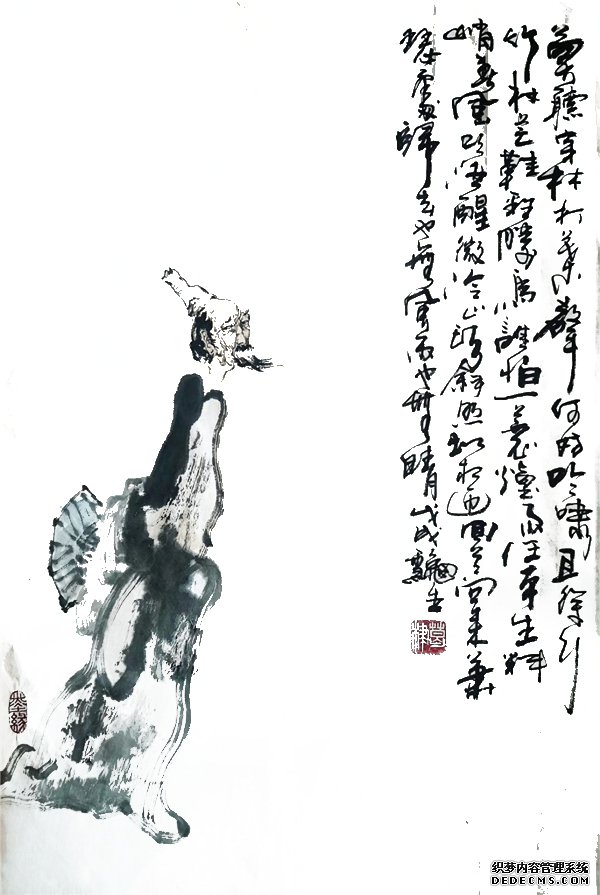 莫聽穿林打葉聲何妨吟嘯且徐行
竹杖芒鞋輕勝馬誰怕一蓑煙雨任平生料
峭春風吹酒醒微冷山頭斜照卻相迎回首向來蕭
瑟處歸去也無風雨也無晴戊戌
织梦内容管理系统
DEDECMS.COM